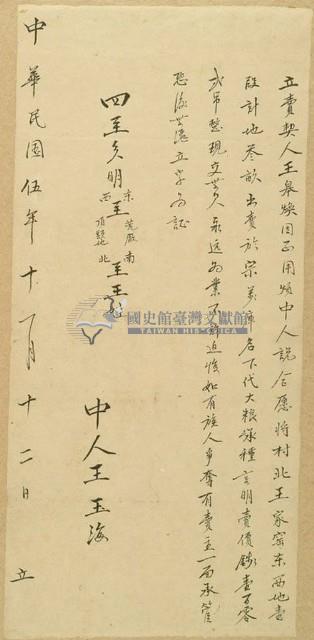 立賣契人王皋煥因正用煩中人說合愿將村北王家窑東西地壹
段計地叁畝出賣於宗名下代大粮耕種言明賣價錢壹百零
弍吊整現交無欠永远為業不許追悔如有族人爭奪有賣主一面承管
恐後無憑立字為証
四至分明 東至荒廠 南至王
西至 北至
中人王玉海
中華民國伍年十一月十二日 立
國史館臺灣文獻館
TAIWAN HISTORICA